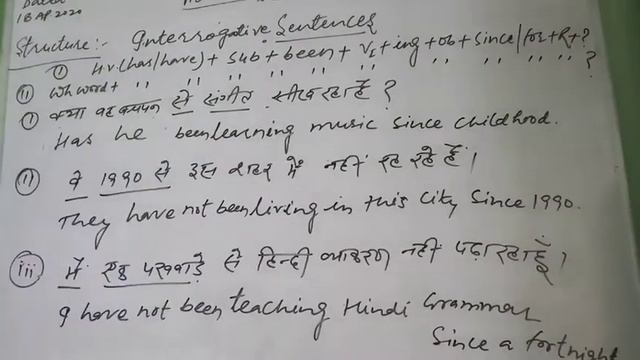 18 AP 2020
Structure:- Interrogative Sentences
(i) Hv (has/have) + sub + been + V1 + ing + ob + since/for + R + ?
(ii) Wh word + " " " " " " " " " ?
(i) क्या वह बचपन से संगीत सीख रहा है ?
Has he been learning music since childhood.
(ii) वे 1990 से इस शहर में नहीं रह रहे हैं।
They have not been living in this city since 1990.
(iii) मैं एक पखवाड़े से हिन्दी व्याकरण नहीं पढ़ा रहा हूँ।
I have not been teaching Hindi Grammar
Since a fortnight